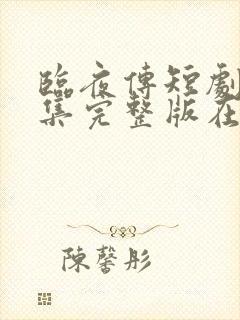 臨夜傅短劇
集完整版在
陳馨彤